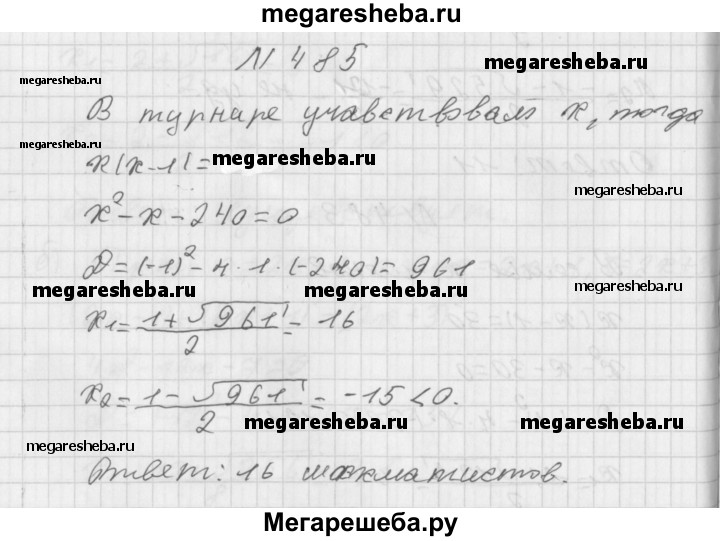 megaresheba.ru
N 485
megaresheba.ru
megaresheba.ru
В турнире учавствовал x, тогда
megaresheba.ru
x(x-1)=
megaresheba.ru
megaresheba.ru
x²-x-240=0
D=(-1)²-4·1·(-240)=961
megaresheba.ru
megaresheba.ru
megaresheba.ru
x₁=(1+√961)/2=16
x₂=(1-√961)/2=-15<0.
megaresheba.ru
megaresheba.ru
megaresheba.ru
Ответ: 16 шахматистов.
Мегарешеба.ру